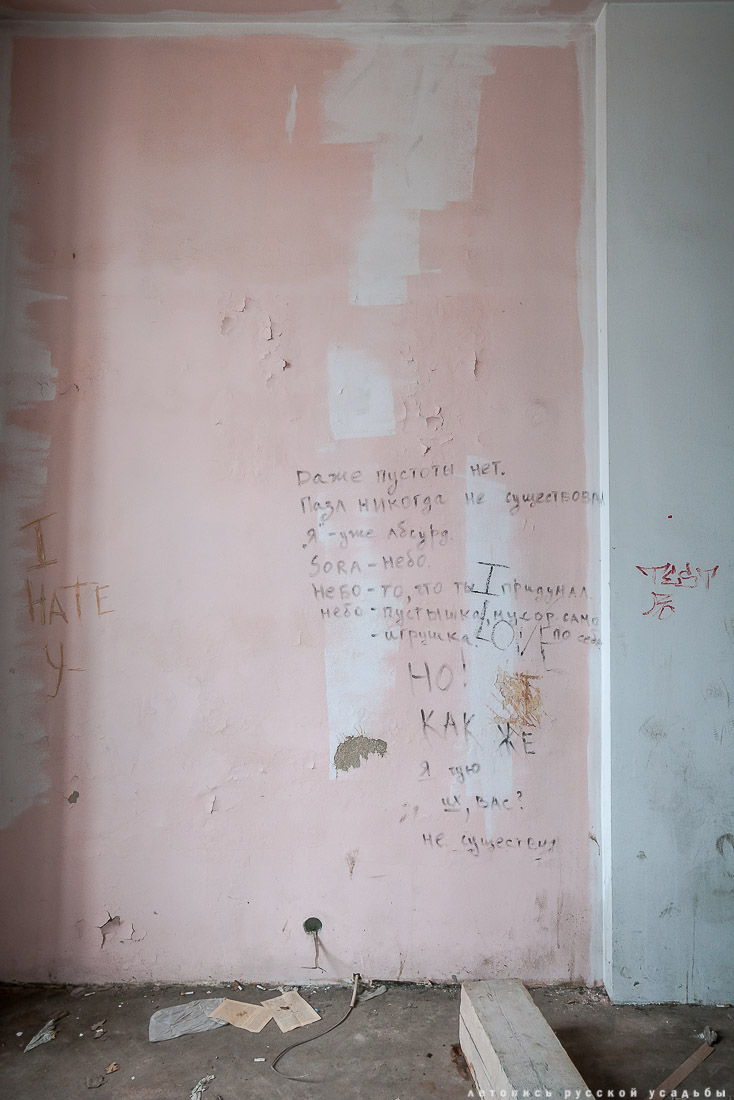 Даже пустоты нет.
Пазл никогда не существовал
"Я" - уже абсурд.
SORA - небо.
Небо - то, что ты придумал
небо - пустышка, мусор само
- игрушка. по себе
I
LOVE
НО!
КАК ЖЕ
Я
их, вас?
не существуя
I
HATE
У
летопись русской усадьбы